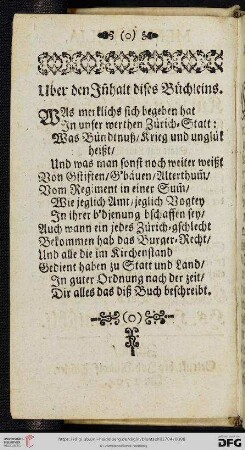 (o)
Uber den Jnhalt dises Büchleins.
WAs mercklichs sich begeben hat
Jn unser werthen Zürich-Statt:
Was Bündtnuß/ Krieg und unglük
heißt/
Und was man sonst noch weiter weißt
Von Gstifften/ G'bäuen/ Alterthum̃/
Vom Regiment in einer Sum̃/
Wie jeglich Amt/ jeglich Vogtey
Jn ihrer b'djenung bschaffen sey/
Auch wann ein jedes Zürich-gschlecht
Bekommen hab das Burger-Recht/
Und alle die im Kirchenstand
Gedient haben zu Statt und Land/
Jn guter Ordnung nach der zeit/
Dir alles das diß Buch beschreibt.
(o)